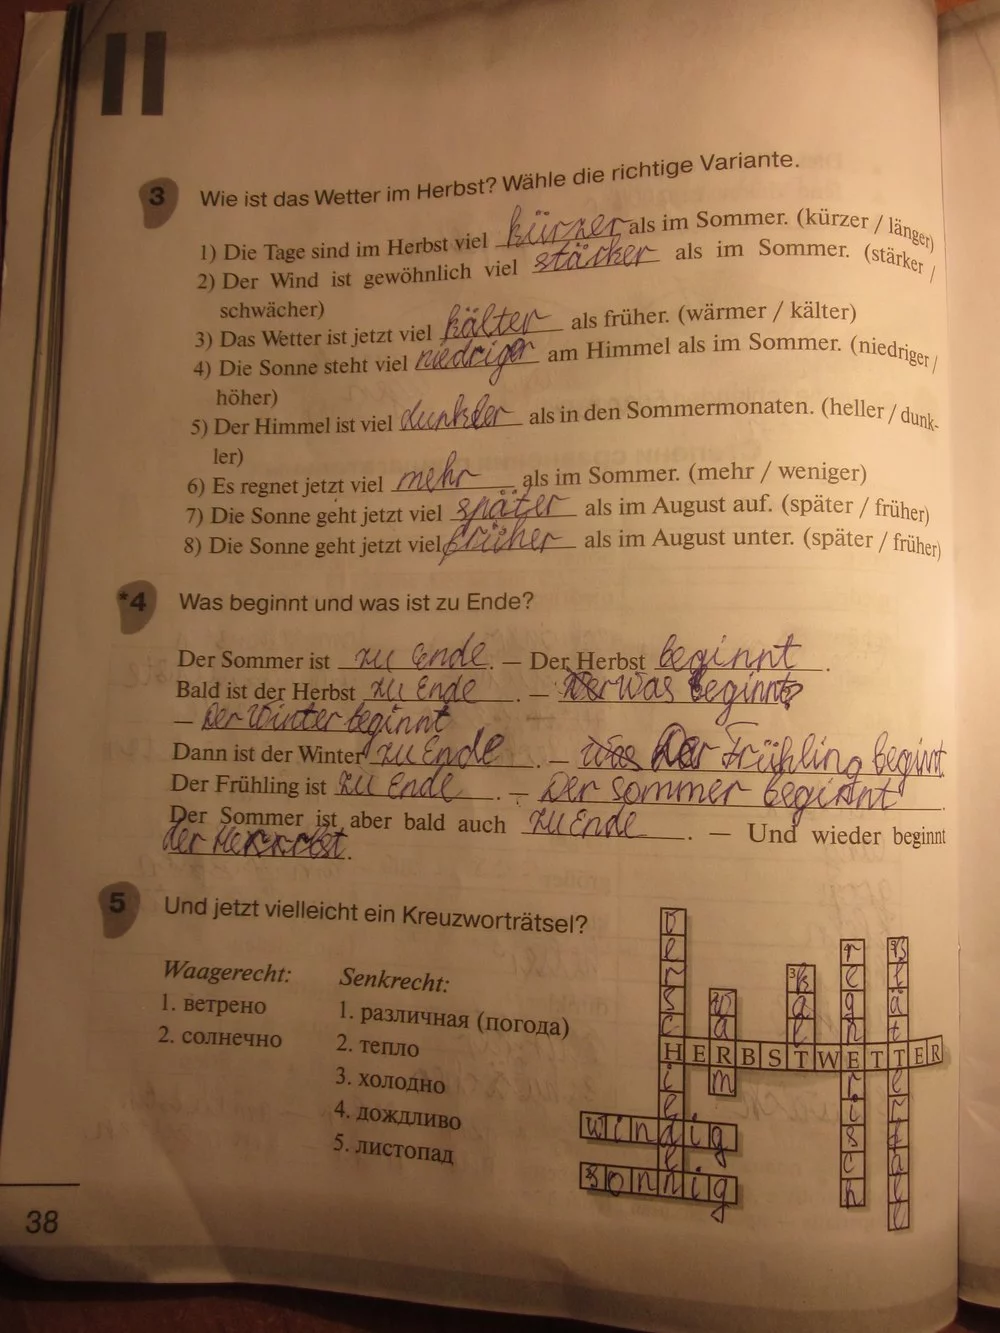 II
3 Wie ist das Wetter im Herbst? Wähle die richtige Variante.
1) Die Tage sind im Herbst viel kürzer als im Sommer. (kürzer / länger)
2) Der Wind ist gewöhnlich viel stärker als im Sommer. (stärker /
schwächer)
3) Das Wetter ist jetzt viel kälter als früher. (wärmer / kälter)
4) Die Sonne steht viel niedriger am Himmel als im Sommer. (niedriger /
höher)
5) Der Himmel ist viel dunkler als in den Sommermonaten. (heller / dunk-
ler)
6) Es regnet jetzt viel mehr als im Sommer. (mehr / weniger)
7) Die Sonne geht jetzt viel später als im August auf. (später / früher)
8) Die Sonne geht jetzt viel früher als im August unter. (später / früher)
*4 Was beginnt und was ist zu Ende?
Der Sommer ist zu Ende. — Der Herbst beginnt.
Bald ist der Herbst zu Ende. — Was beginnt?
— Der Winter beginnt
Dann ist der Winter zu Ende. — Der Frühling beginnt
Der Frühling ist zu Ende. — Der Sommer beginnt.
Der Sommer ist aber bald auch zu Ende. — Und wieder beginnt
der Herbst.
5 Und jetzt vielleicht ein Kreuzworträtsel?
Waagerecht:
1. ветрено
2. солнечно
Senkrecht:
1. различная (погода)
2. тепло
3. холодно
4. дождливо
5. листопад
HERBSTWETTER
warm
3 kalt
regnerisch
windig
sonnig
38